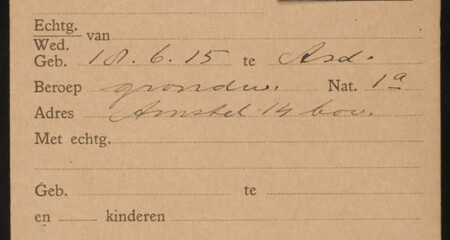 Echtg. van
Wed.
Geb. 18.6.15 te Asd.
Beroep grondw. Nat. 1a
Adres Amstel 14 bov.
Met echtg.
Geb. te
en kinderen